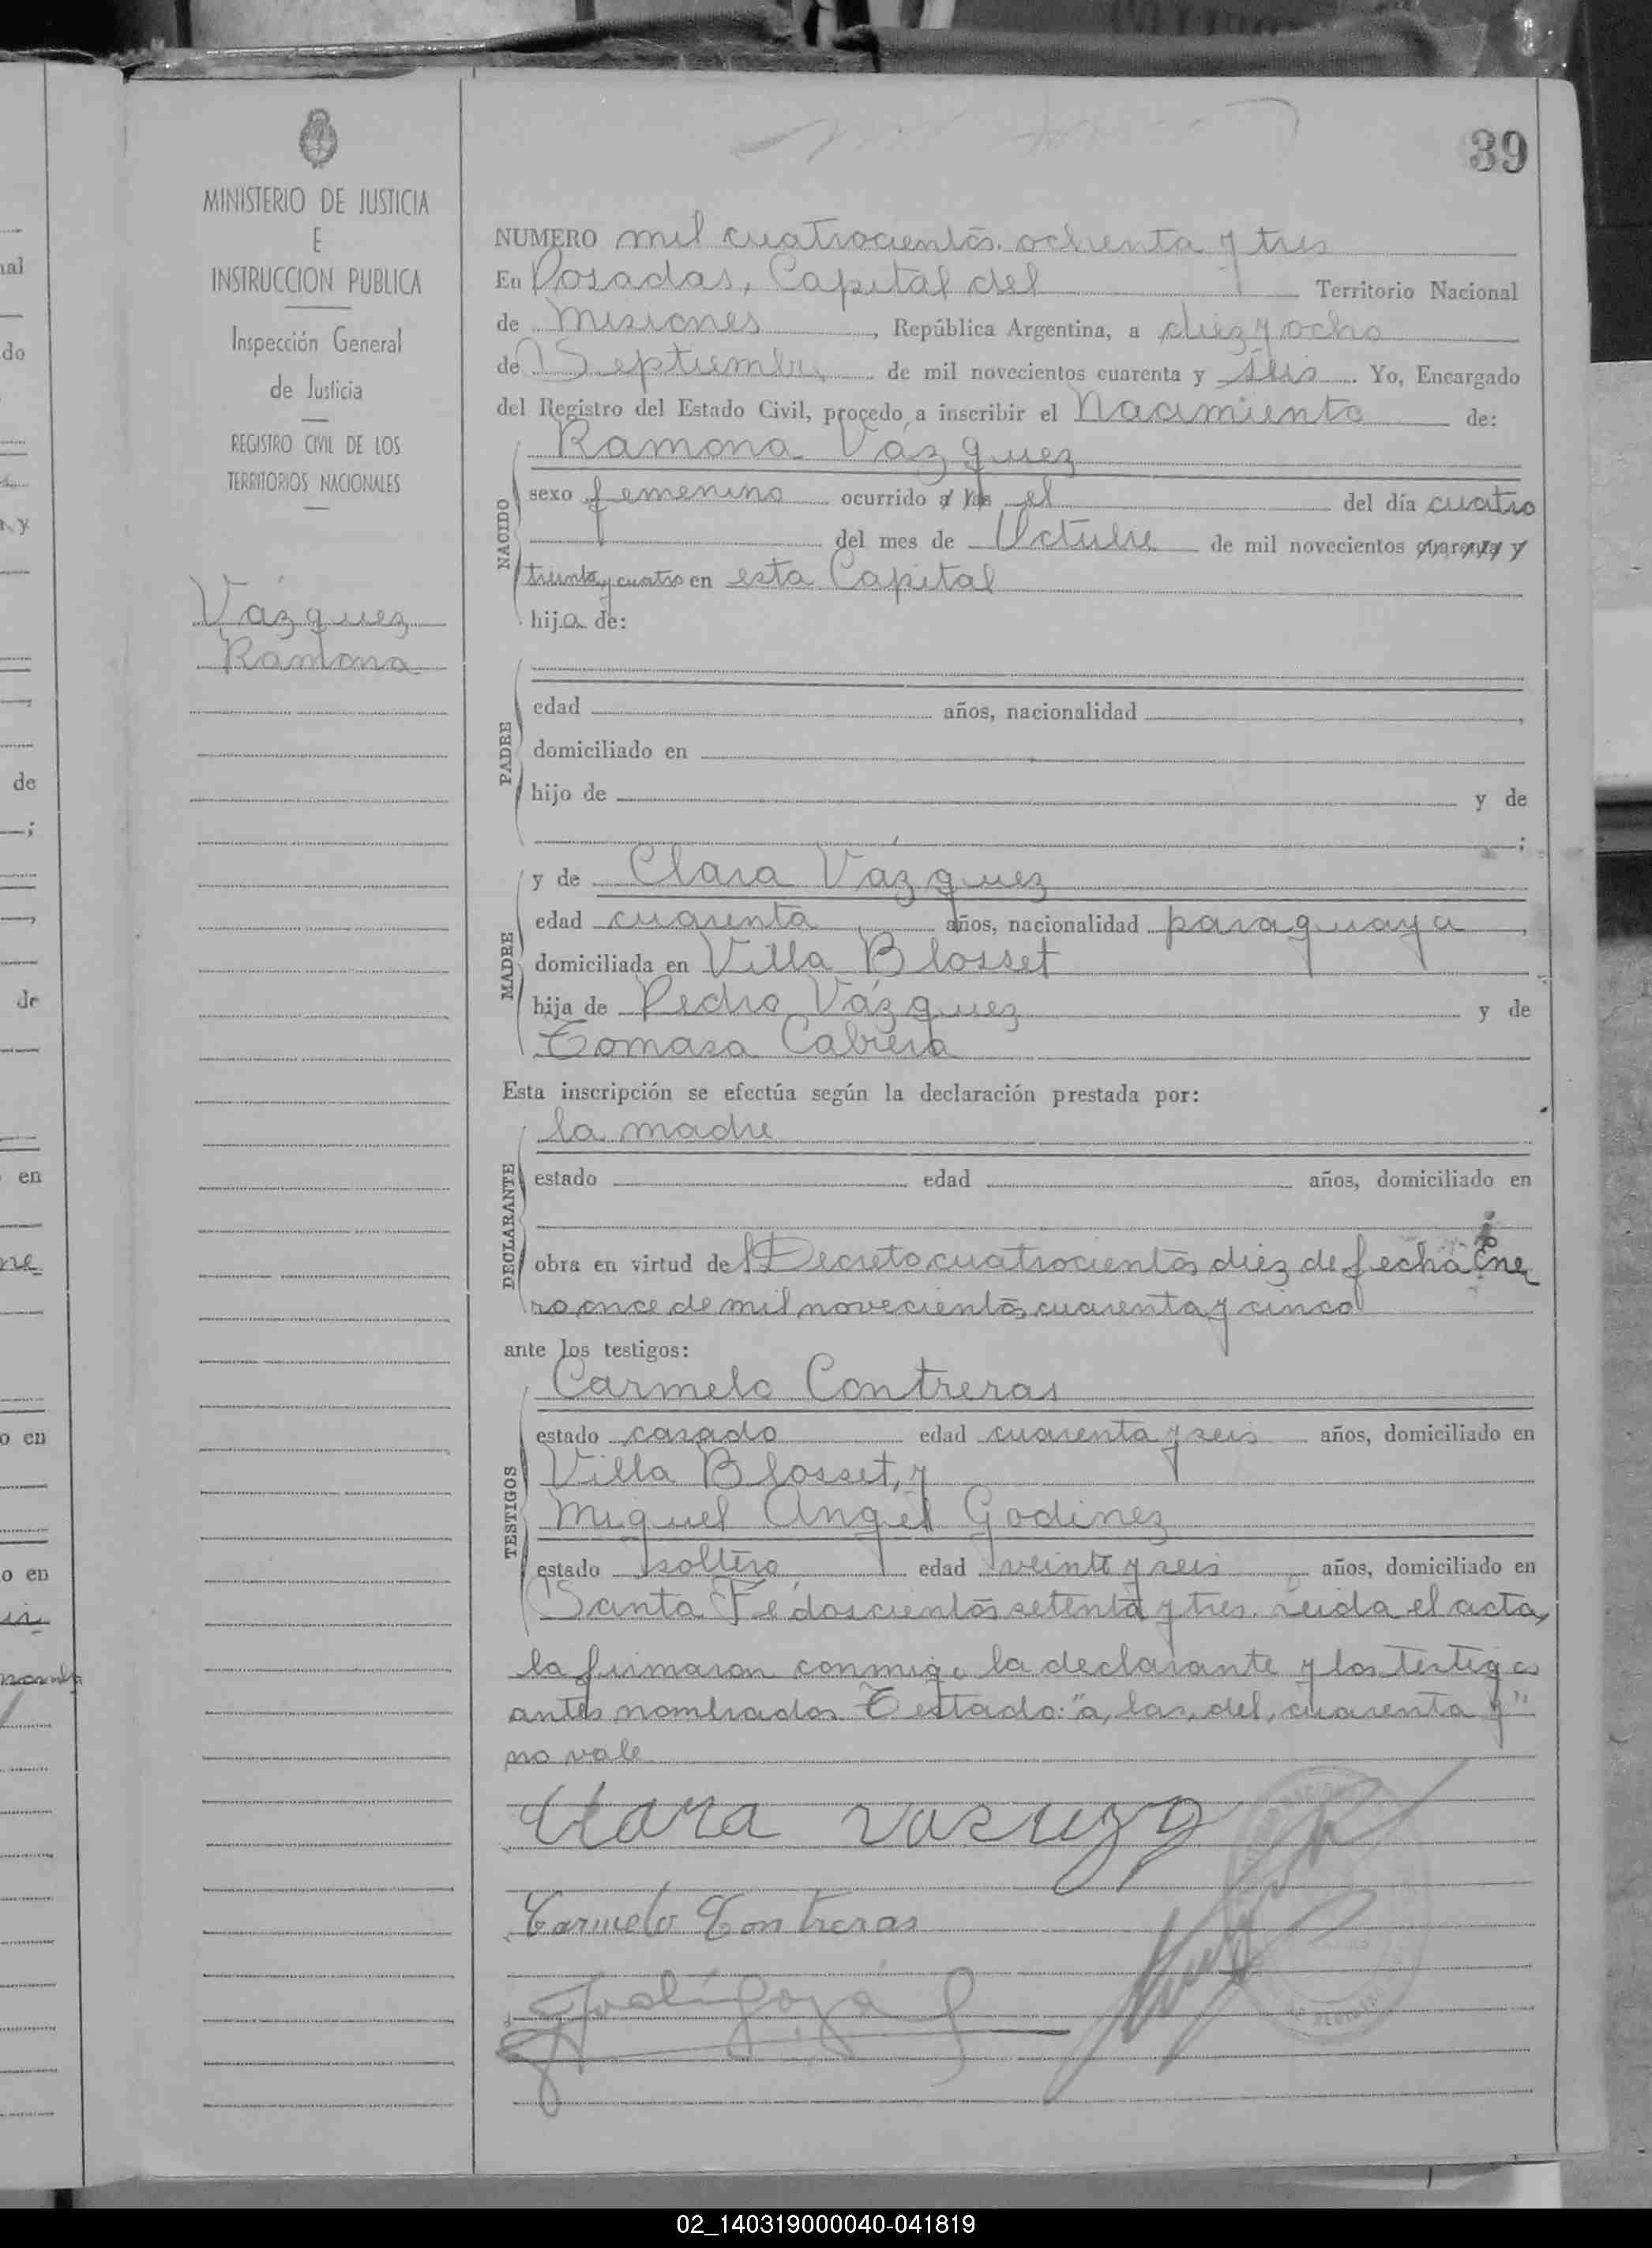 39
MINISTERIO DE JUSTICIA
E
INSTRUCCION PUBLICA
Inspección General
de Justicia
REGISTRO CIVIL DE LOS
TERRITORIOS NACIONALES
Vázquez
Ramona
NUMERO mil cuatrocientos ochenta y tres
En Posadas, Capital del Territorio Nacional
de Misiones, República Argentina, a diez y ocho
de Septiembre de mil novecientos cuarenta y seis. Yo, Encargado
del Registro del Estado Civil, procedo a inscribir el Nacimiento de:
Ramona Vázquez
NACIDO
sexo femenino ocurrido a las el del día cuatro
del mes de Octubre de mil novecientos cuarenta y
treinta y cuatro en esta Capital
hija de:
PADRE
edad años, nacionalidad ,
domiciliado en
hijo de y de
;
MADRE
y de Clara Vázquez
edad cuarenta años, nacionalidad paraguaya,
domiciliada en Villa Blosset
hija de Pedro Vázquez y de
Tomasa Cabrera
Esta inscripción se efectúa según la declaración prestada por:
DECLARANTE
la madre
estado edad años, domiciliado en
obra en virtud del Decreto cuatrocientos diez de fecha Ene
ro once de mil novecientos cuarenta y cinco
ante los testigos:
TESTIGOS
Carmelo Contreras
estado casado edad cuarenta y seis años, domiciliado en
Villa Blosset, y
Miguel Angel Godinez
estado soltero, edad veinte y seis años, domiciliado en
Santa Fé doscientos setenta y tres. Leida el acta,
la firmaron conmigo la declarante y los testigos
antes nombrados. Testado: "a, las, del, cuarenta y"
no vale
Clara
Carmelo Contreras
02_140319000040-041819